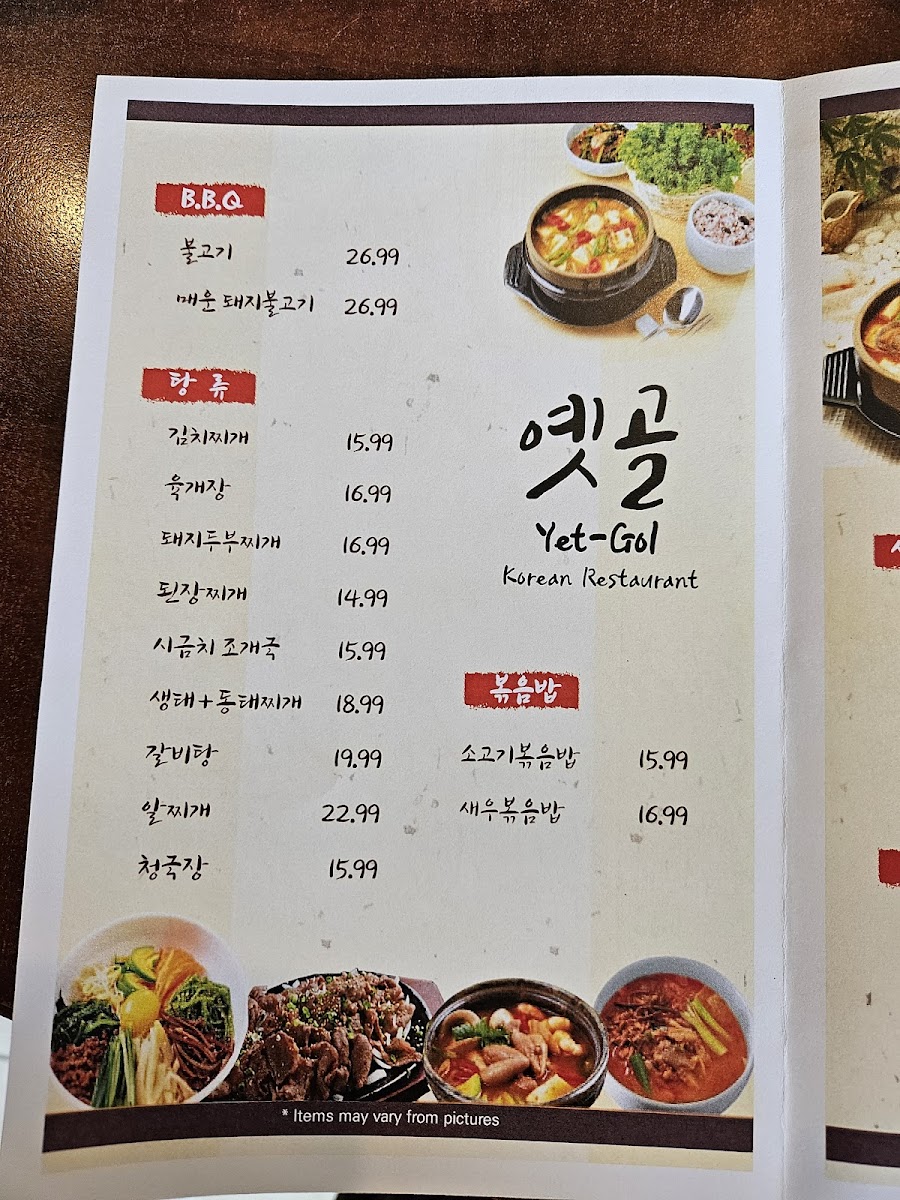 B.B.Q
불고기 26.99
매운 돼지불고기 26.99
탕 류
김치찌개 15.99
육개장 16.99
돼지두부찌개 16.99
된장찌개 14.99
시금치 조개국 15.99
생태+동태찌개 18.99
갈비탕 19.99
알찌개 22.99
청국장 15.99
옛골
Yet-Gol
Korean Restaurant
볶음밥
소고기볶음밥 15.99
새우볶음밥 16.99
* Items may vary from pictures